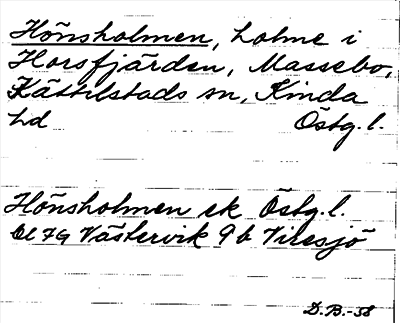 Hönsholmen, holme i
Horsfjärden, Massebo,
Kättilstads sn, Kinda
hd Östg. l.
Hönsholmen ek Östg. l.
Bl 7G Västervik 9b Viresjö
D.B.-58